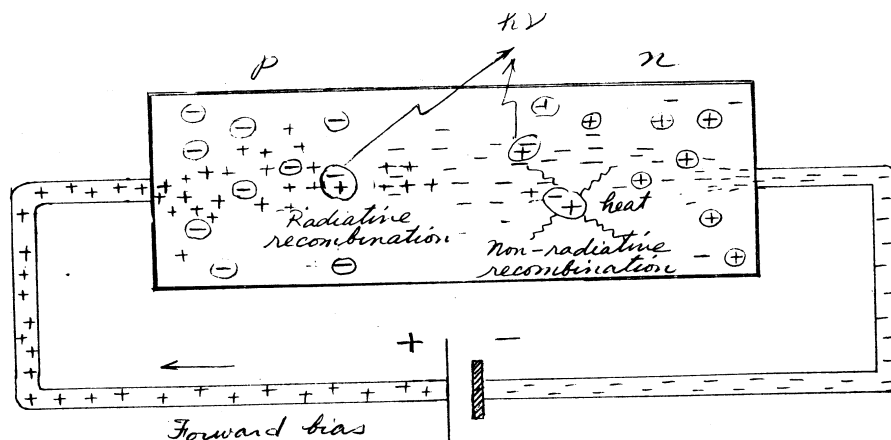 hν
p n
Radiative
recombination
heat
Non-radiative
recombination
+ −
Forward bias